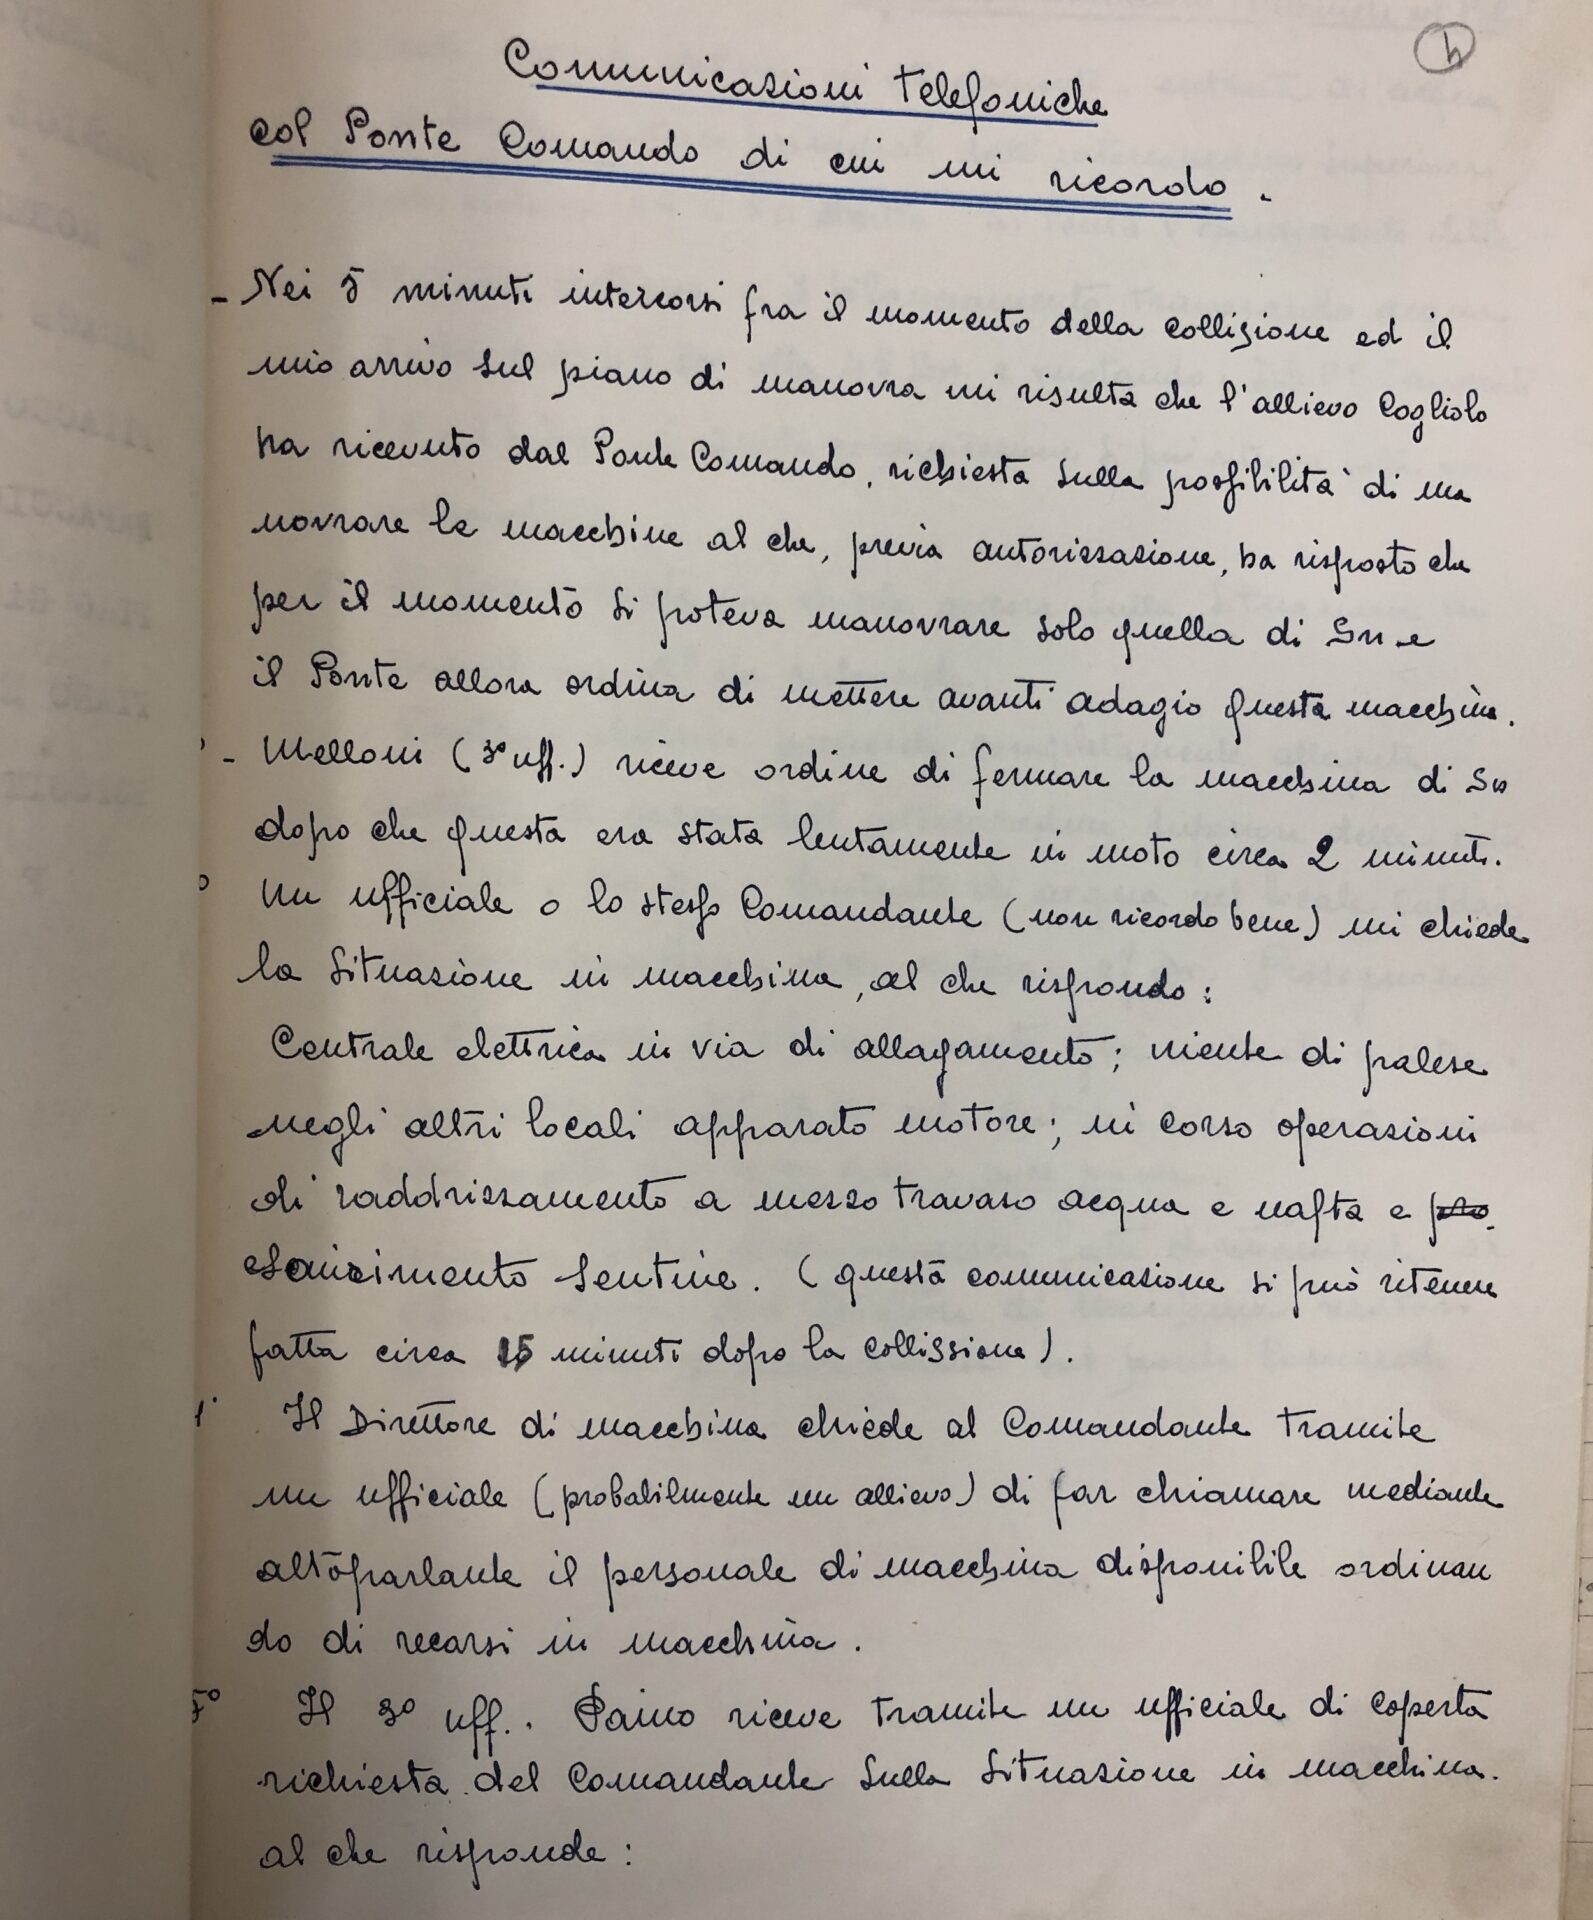 h
Comunicazioni Telefoniche
col Ponte Comando di cui mi ricordo.
- Nei 5 minuti intercorsi fra il momento della collisione ed il
mio arrivo sul piano di manovra mi risulta che l'allievo Cogliolo
ha ricevuto dal Ponte Comando, richiesta sulla possibilità di ma
novrare le macchine al che, previa autorizzazione, ha risposto che
per il momento si poteva manovrare solo quella di Sn. e
il Ponte allora ordina di mettere avanti adagio questa macchina.
- Melloni (3° uff.) riceve ordine di fermare la macchina di Sn
dopo che questa era stata lentamente in moto circa 2 minuti.
Un ufficiale o lo stesso Comandante (non ricordo bene) mi chiede
la situazione in macchina, al che rispondo:
Centrale elettrica in via di allagamento; niente di palese
negli altri locali apparato motore; in corso operazioni
di raddrizzamento a mezzo travaso acqua e nafta e pro
esaurimento sentine. (questa comunicazione si può ritenere
fatta circa 15 minuti dopo la collissione).
Il Direttore di macchina chiede al Comandante tramite
un ufficiale (probabilmente un allievo) di far chiamare mediante
altoparlante il personale di macchina disponibile ordinan
do di recarsi in macchina.
5° Il 3° uff. Paino riceve tramite un ufficiale di coperta
richiesta del Comandante sulla situazione in macchina.
al che risponde: